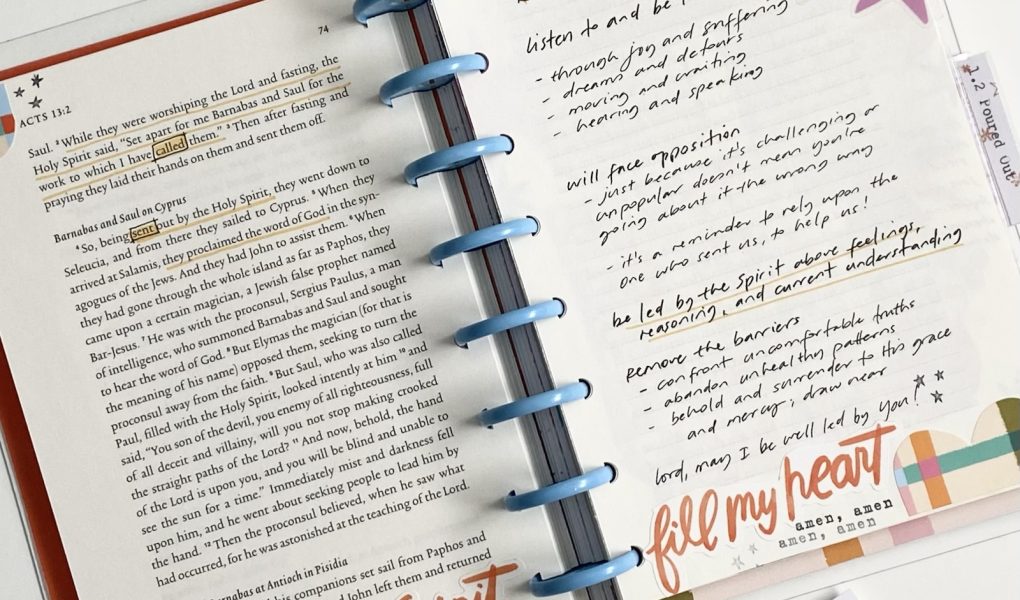 74
ACTS 13:2
Saul. ² While they were worshiping the Lord and fasting, the
Holy Spirit said, “Set apart for me Barnabas and Saul for the
work to which I have called them.” ³ Then after fasting and
praying they laid their hands on them and sent them off.
Barnabas and Saul on Cyprus
⁴ So, being sent out by the Holy Spirit, they went down to
Seleucia, and from there they sailed to Cyprus. ⁵ When they
arrived at Salamis, they proclaimed the word of God in the syn-
agogues of the Jews. And they had John to assist them. ⁶ When
they had gone through the whole island as far as Paphos, they
came upon a certain magician, a Jewish false prophet named
Bar-Jesus. ⁷ He was with the proconsul, Sergius Paulus, a man
of intelligence, who summoned Barnabas and Saul and sought
to hear the word of God. ⁸ But Elymas the magician (for that is
the meaning of his name) opposed them, seeking to turn the
proconsul away from the faith. ⁹ But Saul, who was also called
Paul, filled with the Holy Spirit, looked intently at him ¹⁰ and
said, “You son of the devil, you enemy of all righteousness, full
of all deceit and villainy, will you not stop making crooked
the straight paths of the Lord? ¹¹ And now, behold, the hand
of the Lord is upon you, and you will be blind and unable to
see the sun for a time.” Immediately mist and darkness fell
upon him, and he went about seeking people to lead him by
the hand. ¹² Then the proconsul believed, when he saw what
had occurred, for he was astonished at the teaching of the Lord.
at Antioch in Pisidia
his companions set sail from Paphos and
John left them and returned
listen to and be
- through joy and suffering
- dreams and detours
- moving and waiting
- hearing and speaking
will face opposition
- just because it's challenging or
unpopular doesn't mean you're
going about it the wrong way
- it's a reminder to rely upon the
one who sent us, to help us!
be led by the Spirit above feelings,
reasoning, and current understanding
remove the barriers
- confront uncomfortable truths
- abandon unhealthy patterns
- behold and surrender to His grace
and mercy; draw near
lord, may I be well led by You!
fill my heart
amen, amen
amen, amen
1.2 Poured Out